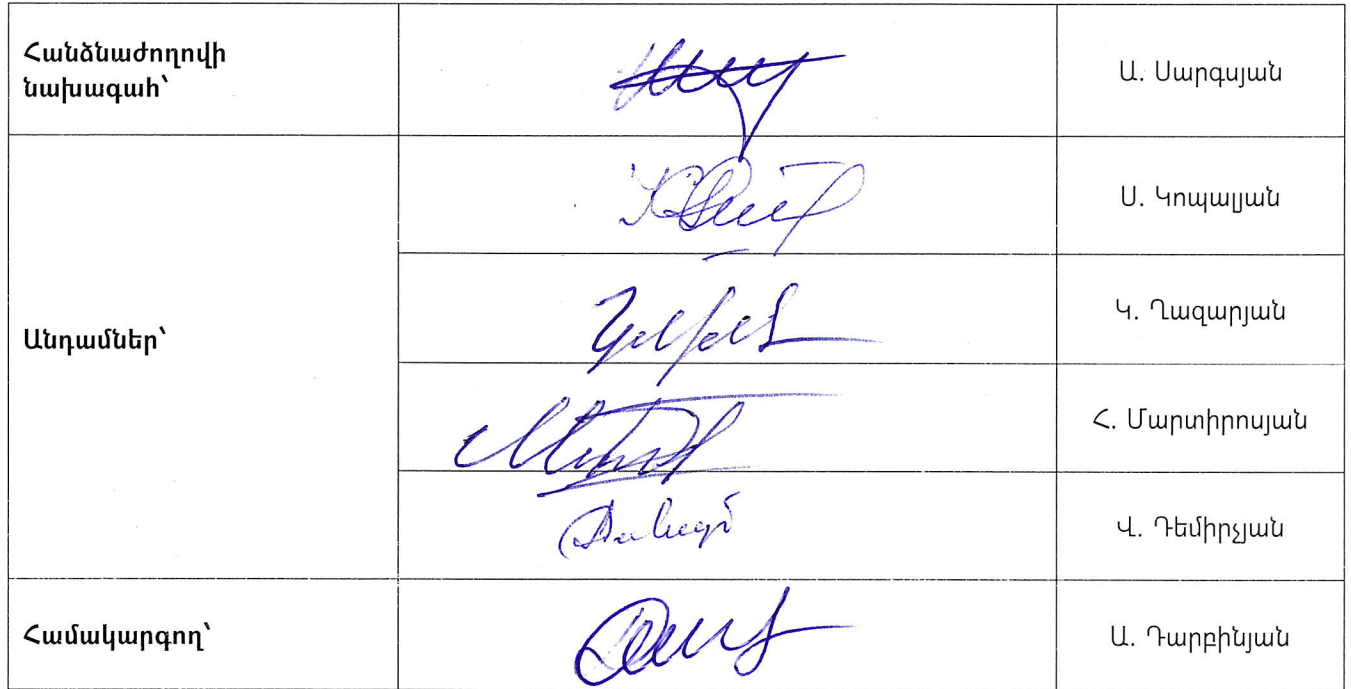 Հանձնաժողովի
նախագահ՝
Ա. Սարգսյան
Ս. Կոպալյան
Անդամներ՝
Կ. Ղազարյան
Հ. Մարտիրոսյան
Վ. Դեմիրչյան
Համակարգող՝
Ա. Դարբինյան